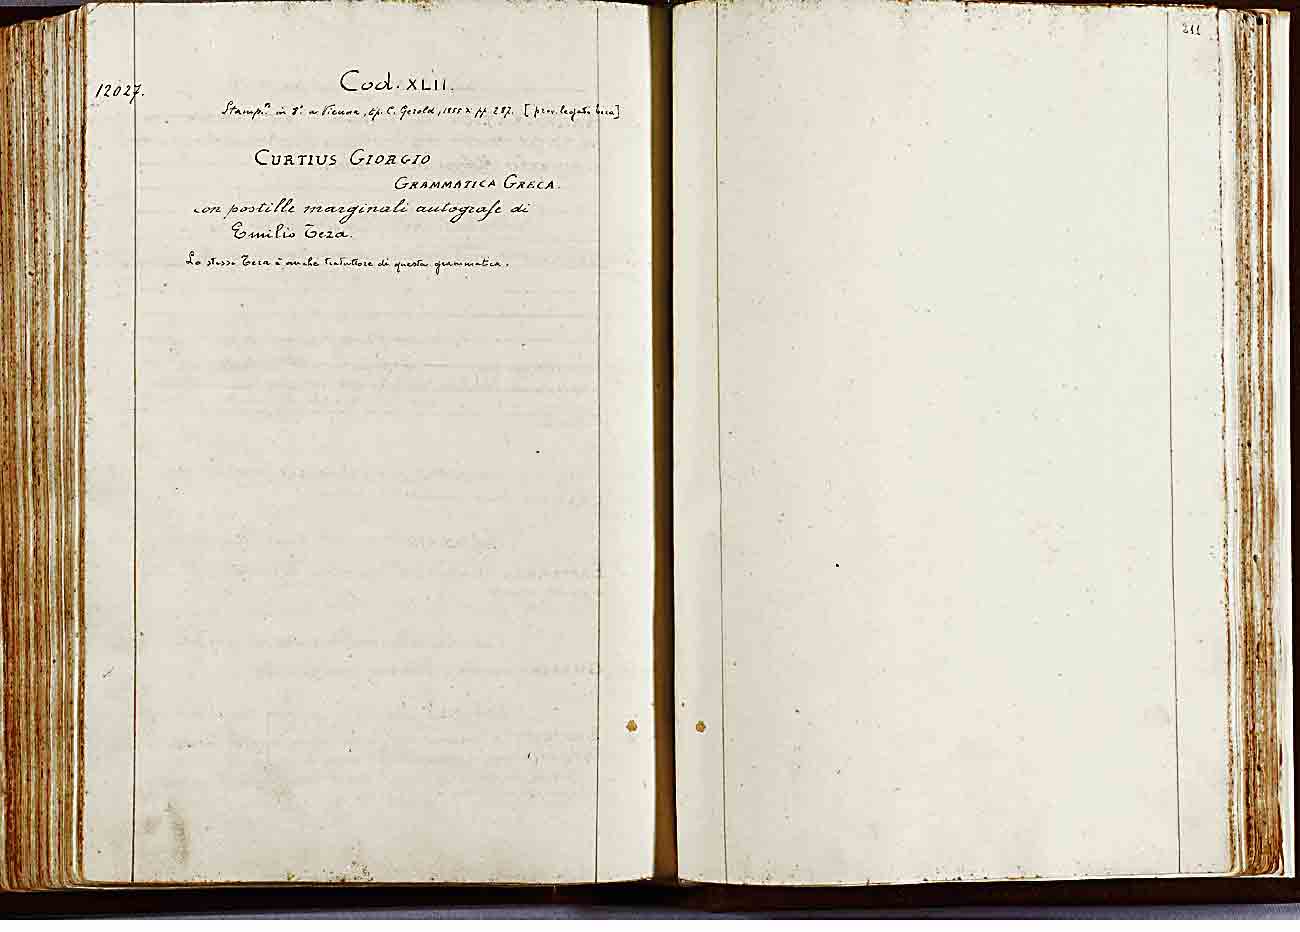 12027.
Cod. XLII.
Stamp.º in 8º a Vienna, tip. C. Gerold, 1855 pp. 287. [prov. legato Teza]
CURTIUS GIORGIO
GRAMMATICA GRECA.
con postille marginali autografe di
Emilio Teza.
Lo stesso Teza è anche traduttore di questa grammatica.
211